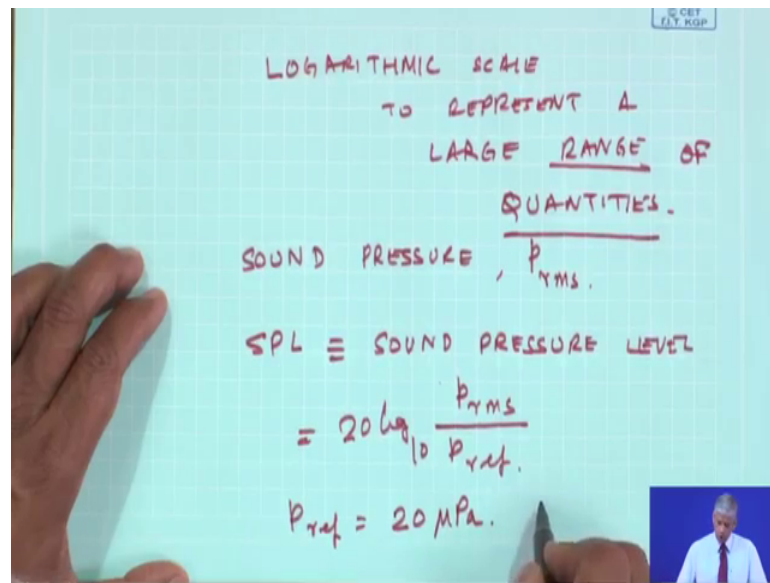 © CET
I.I.T. KGP
LOGARITHMIC SCALE
TO REPRESENT A
LARGE RANGE OF
QUANTITIES.
SOUND PRESSURE, p_rms.
SPL ≡ SOUND PRESSURE LEVEL
= 20 log₁₀ p_rms / p_ref.
p_ref = 20 μPa.